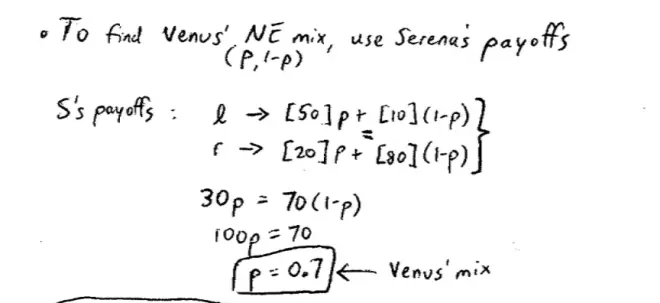 • To find Venus' NE mix, use Serena's payoffs
(P, 1-p)
S's payoffs : l → [50]p + [10](1-p)
=
r → [20]p + [80](1-p)
30p = 70(1-p)
100p = 70
p = 0.7 ← Venus' mix